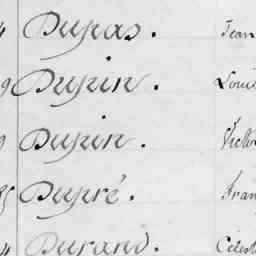 4 Dupas. Jean
9 Dupin. Loui
9 Dupin. Victo
Dupré. Fran
4 Durand. Célest